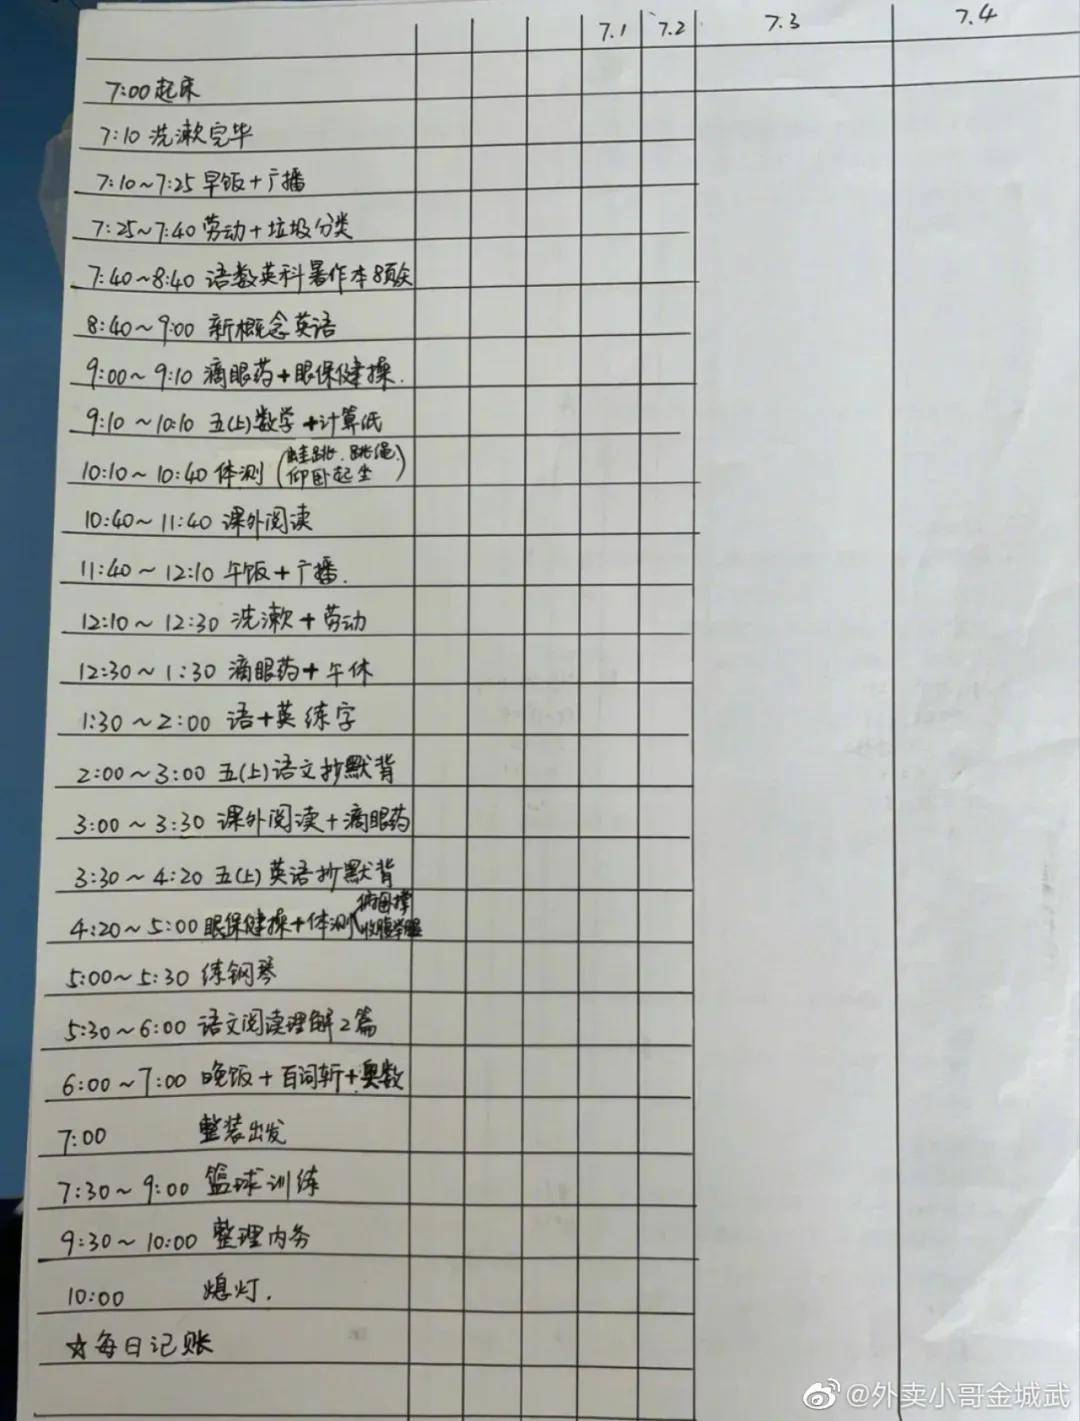 7.1 7.2 7.3 7.4
7:00起床
7:10 洗漱完毕
7:10~7:25 早饭+广播
7:25~7:40 劳动+垃圾分类
7:40~8:40 语数英科暑作本8页/天
8:40~9:00 新概念英语
9:00~9:10 滴眼药+眼保健操.
9:10~10:10 五(上)数学+计算纸
10:10~10:40 体测(蛙跳、跳绳、仰卧起坐)
10:40~11:40 课外阅读
11:40~12:10 午饭+广播.
12:10~12:30 洗漱+劳动
12:30~1:30 滴眼药+午休
1:30~2:00 语+英练字
2:00~3:00 五(上)语文抄默背
3:00~3:30 课外阅读+滴眼药
3:30~4:20 五(上)英语抄默背
4:20~5:00 眼保健操+体测(俯卧撑 收腹举腿
5:00~5:30 练钢琴
5:30~6:00 语文阅读理解2篇
6:00~7:00 晚饭+百词斩+奥数
7:00 整装出发
7:30~9:00 篮球训练
9:30~10:00 整理内务
10:00 熄灯.
☆每日记账
@外卖小哥金城武